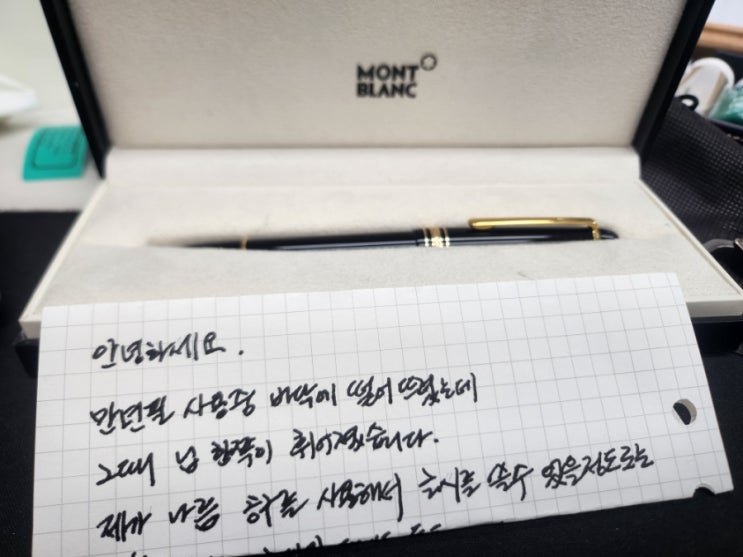 MONT
BLANC
안녕하세요.
만년필 사용중 바닥에 떨어뜨렸는데
그때 닙 한쪽이 휘어졌습니다.
제가 나름 힘을 사용해서 글씨를 쓸수 있을정도로는